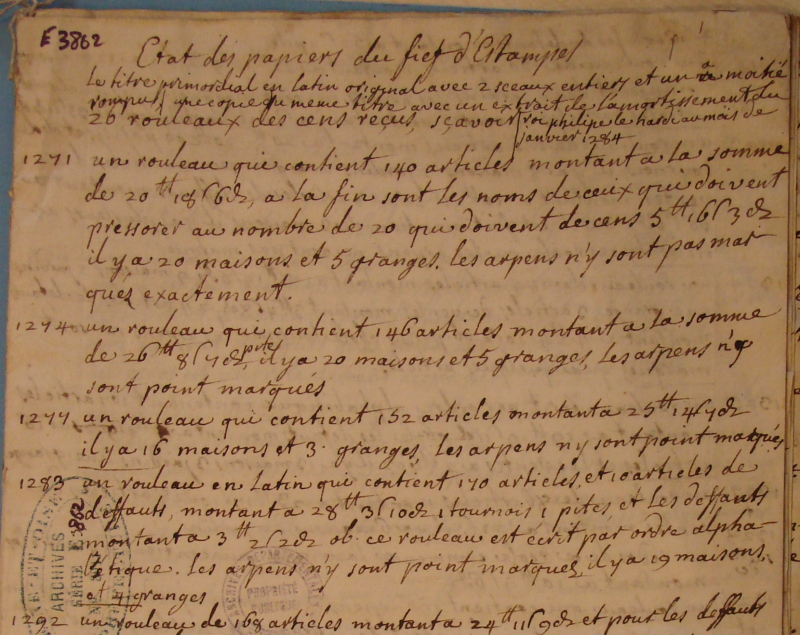 E 3862
Etat des papiers du fief d'Estampes
Le titre primordial en latin original avec 2 sceaux entiers et un a moitié
rompus, une copie du meme titre avec un extrait de lamortissement du
26 rouleaux des cens reçus, sçavoir roi philipe le hardi au mois de
janvier 1284
1271 un rouleau qui contient 140 articles montant a la somme
de 20 tt 18 s 6 d, a la fin sont les noms de ceux qui doivent
pressorer au nombre de 20 qui doivent de cens 5 tt 16 s 3 d
il y a 20 maisons et 5 granges. les arpens n'y sont pas mar
quez exactement.
1274 un rouleau qui contient 146 articles montant a la somme
de 26 tt 8 s 7 d pite, il y a 20 maisons et 5 granges, les arpens n'y
sont point marqués
1277 un rouleau qui contient 152 articles montant a 25 tt 14 s 7 d
il y a 16 maisons et 3 granges, les arpens n'y sont point marqués
1283 un rouleau en latin qui contient 170 articles, et 10 articles de
deffauts, montant a 28 tt 3 s 10 d 1 tournois 1 pites, et les deffauts
montant a 3 tt 2 s 2 d ob. ce rouleau est écrit par ordre alpha-
bétique. les arpens n'y sont point marquez, il y a 19 maisons,
et 4 granges
1292 un rouleau de 168 articles montant a 24 tt 11 s 9 d et pour les deffauts
ARCHIVES
SERIE E 3862